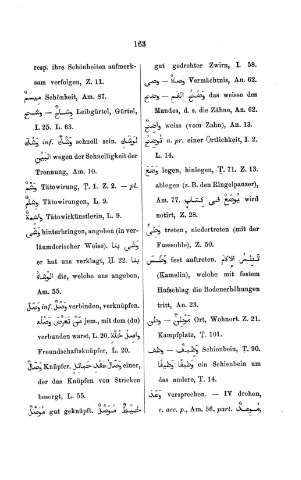 163
resp. ihre Schönheiten aufmerk-
sam verfolgen, Z. 11.
ميسم Schönheit, Am. 87.
وشاح — وشح Leibgürtel, Gürtel,
I. 25. L. 63.
وشك inf. وشك schnell sein.
البين wegen der Schnelligkeit der
Trennung, Am. 10.
وشم Tätowirung, T. 1. Z. 2. — pl.
وشوم Tätowirungen, L. 9.
واشمة Tätowirkünstlerin, L. 9.
وشى hinterbringen, angeben (in ver-
läumderischer Weise). وشى بنا
er hat uns verklagt, H. 22.
الوشاة die, welche uns angeben,
Am. 55.
وصل inf. وصل verbinden, verknüpfen.
jem., mit dem (du)
verbunden warst, L. 20.
Freundschaftsknüpfer, L. 20.
وصال Knüpfer. einer,
der das Knüpfen von Stricken
besorgt, L. 55.
موصل gut geknüpft.
gut gedrehter Zwirn, I. 58.
وصى — وصاة Vermächtnis, An. 62.
وضح — وضح الفم das weisse des
Mundes, d. i. die Zähne, An. 62.
واضح weiss (vom Zahn), An. 13.
n. pr. einer Örtlichkeit, I. 2.
L. 14.
وضع legen, hinlegen, T. 71. Z. 13.
ablegen (z. B. den Ringelpanzer),
Am. 77. wird
notirt, Z. 28.
وطئ treten, niedertreten (mit der
Fussohle), Z. 50.
وطس fest auftreten.
(Kamelin), welche mit festem
Hufschlag die Bodenerhöhungen
tritt, An. 23.
موطن — وطن Ort, Wohnort, Z. 21.
Kampfplatz, T. 101.
وظيف — وظف Schienbein, T. 90.
وظيفا وظيفا ein Schienbein um
das andere, T. 14.
وعد versprechen. — IV drohen,
c. acc. p., Am. 56. part.